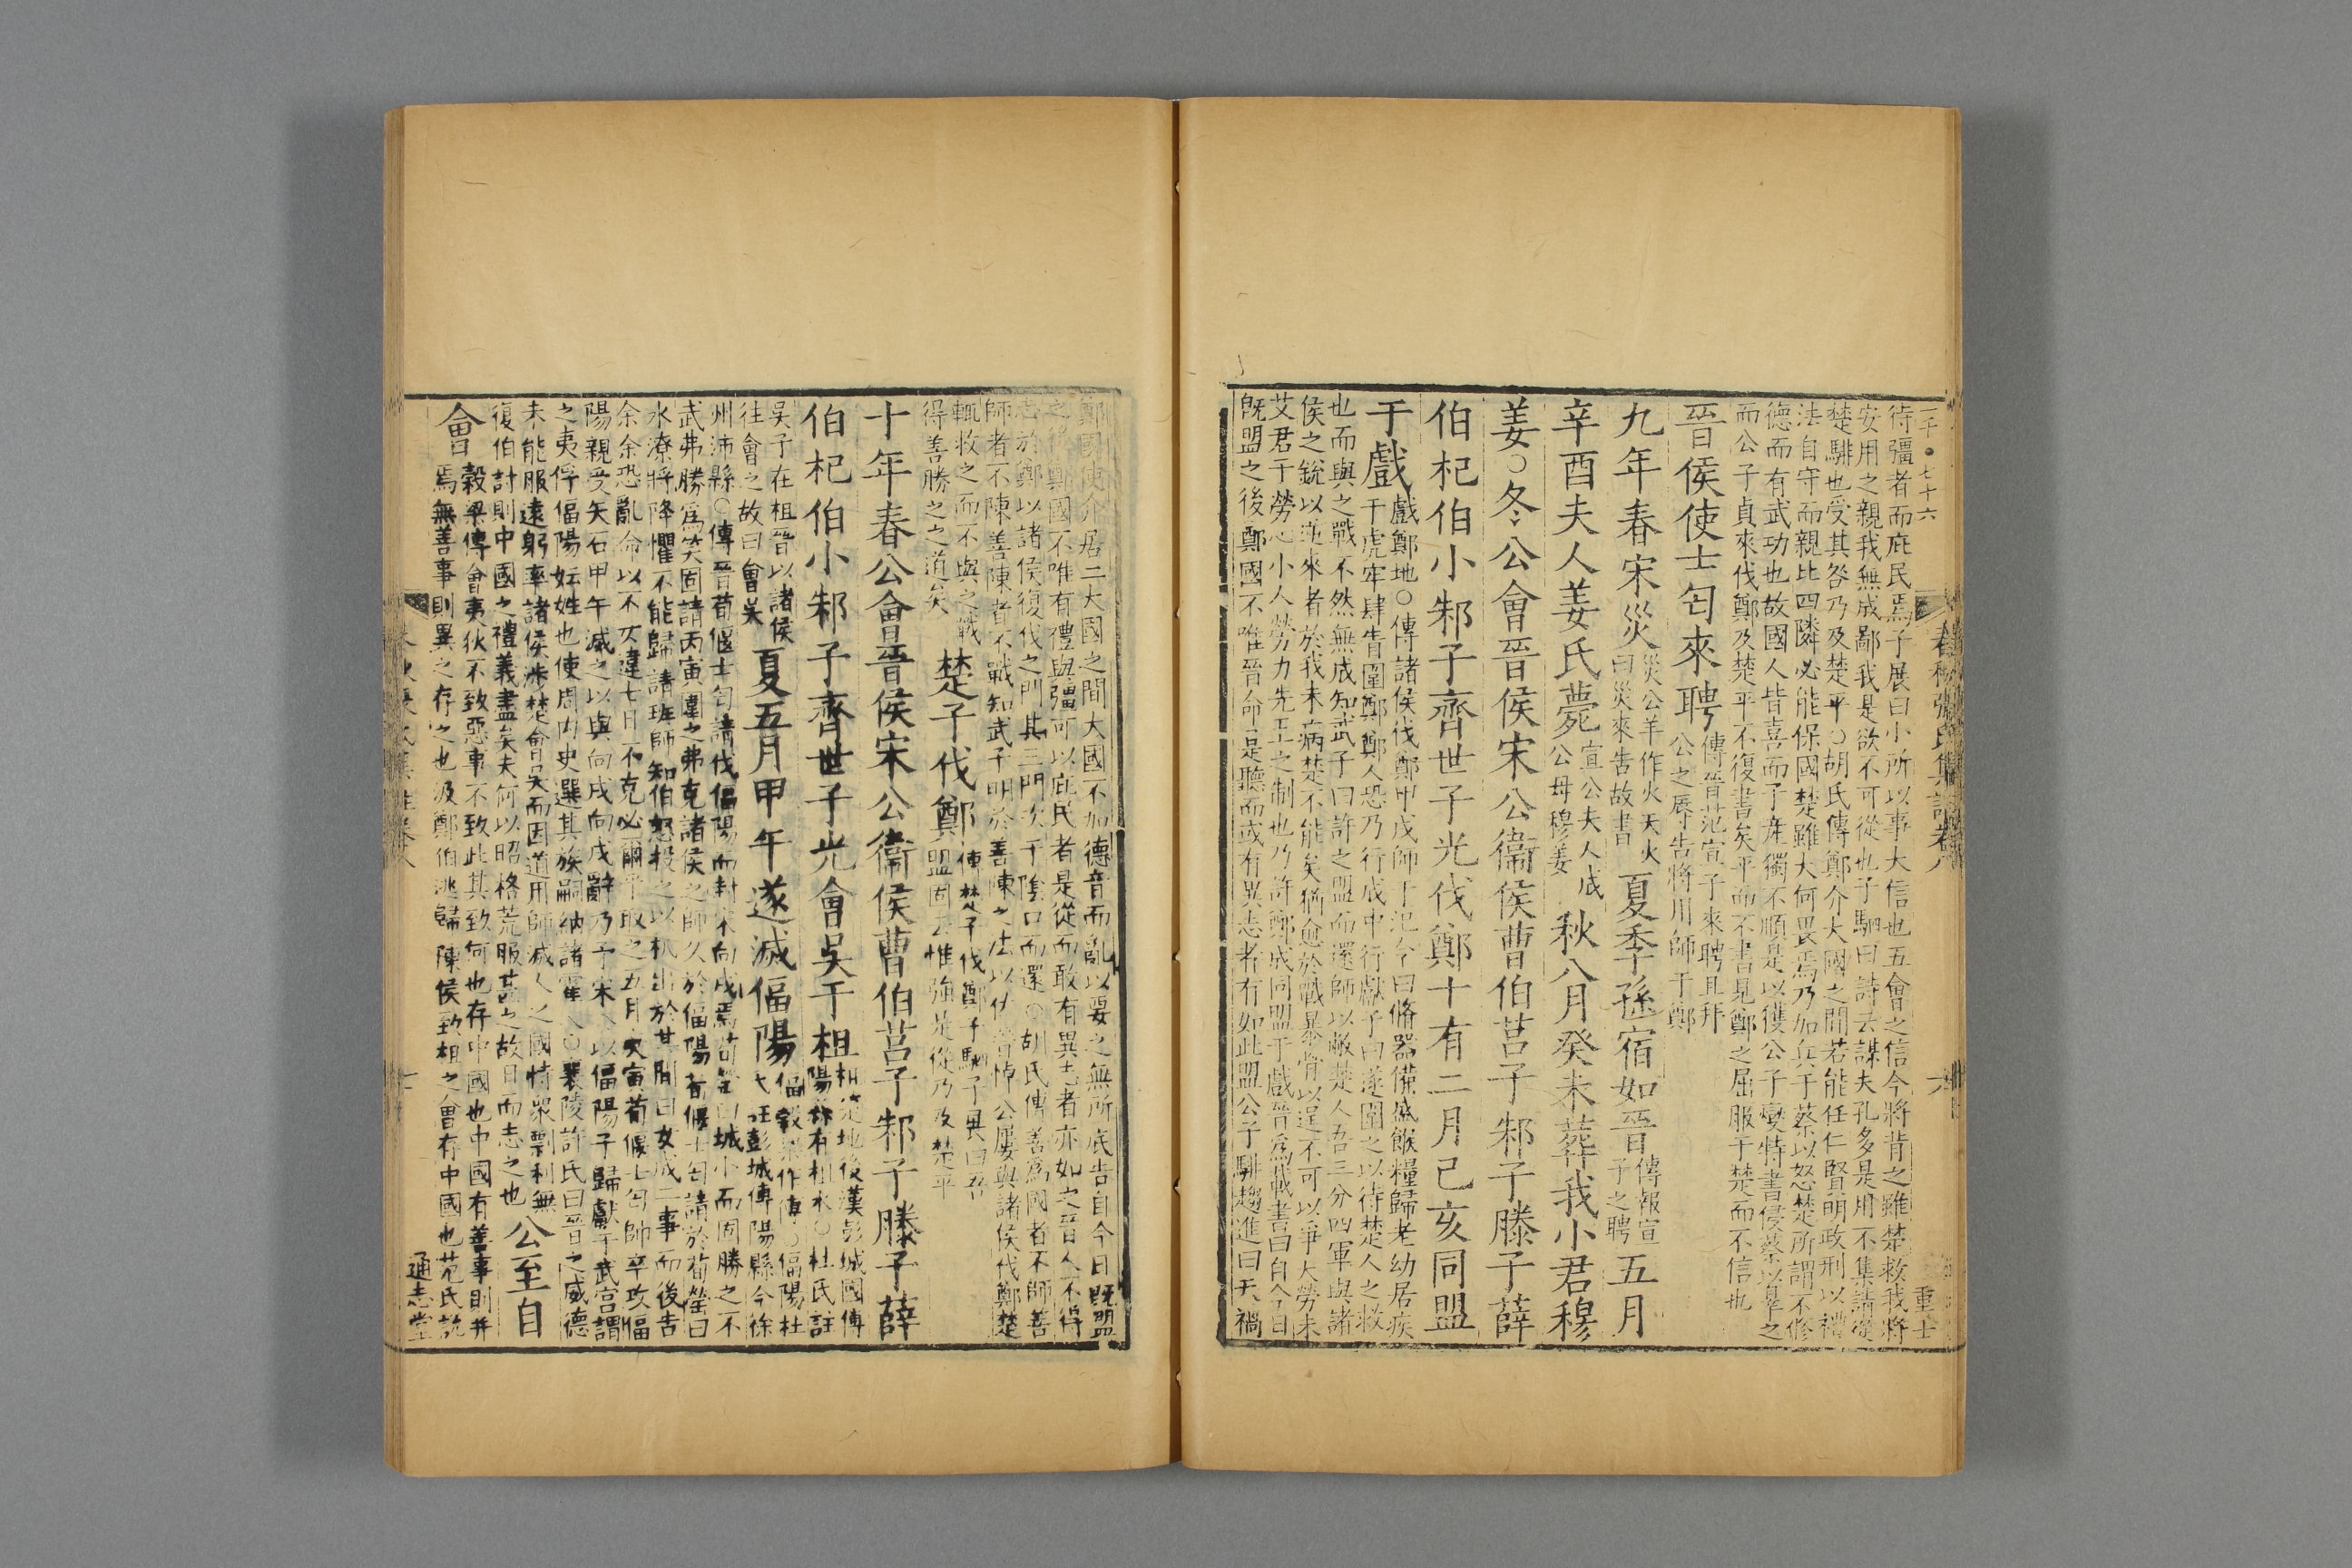 二千●七十六
春秋張氏集註卷八
六
重士
待彊者而庇民焉子展曰小所以事大信也五會之信今將背之雖楚救我將
安用之親我無成鄙我是欲不可從也子駟曰詩云謀夫孔多是用不集請從
楚騑也受其咎乃及楚平○胡氏傳鄭介大國之間若能任仁賢明政刑以禮
法自守而親比四隣必能保國楚雖大何畏焉乃加兵于蔡以怒楚所謂不修
德而有武功也故國人皆喜而子產獨不順是以獲公子燮特書侵蔡以罪之
而公子貞來伐鄭及楚平不復書矣平而不書見鄭之屈服于楚而不信也
晉侯使士匄來聘
傳晉范宣子來聘且拜
公之辱告將用師于鄭
九年春宋災
災公羊作火天火
曰災來告故書
夏季孫宿如晉
傳報宣
子之聘
五月
辛酉夫人姜氏薨
宣公夫人成
公母穆姜
秋八月癸未葬我小君穆
姜○冬公會晉侯宋公衞侯曹伯莒子邾子滕子薛
伯杞伯小邾子齊世子光伐鄭十有二月己亥同盟
于戲
戲鄭地○傳諸侯伐鄭甲戌師于氾令曰脩器備盛餱糧歸老幼居疾
于虎牢肆眚圍鄭鄭人恐乃行成中行獻子曰遂圍之以待楚人之救
也而與之戰不然無成知武子曰許之盟而還師以敝楚人吾三分四軍與諸
侯之銳以逆來者於我未病楚不能矣猶愈於戰暴骨以逞不可以爭大勞未
艾君子勞心小人勞力先王之制也乃許鄭成同盟于戲晉爲載書曰自今日
旣盟之後鄭國不唯晉命是聽而或有異志者有如此盟公子騑趨進曰天禍
鄭國使介居二大國之間大國不加德音而亂以要之無所底告自今日旣盟
之後鄭國不唯有禮與彊可以庇民者是從而敢有異志者亦如之晉人不得
志於鄭以諸侯復伐之門其三門次于陰口而還○胡氏傳善爲國者不師善
師者不陳善陳者不戰知武子明於善陳之法以佚待勞悼公屢與諸侯伐鄭楚
輒救之而不與之戰
得善勝之之道矣
楚子伐鄭
傳楚子伐鄭子駟子展曰吾
盟固云惟強是從乃及楚平
十年春公會晉侯宋公衞侯曹伯莒子邾子滕子薛
伯杞伯小邾子齊世子光會吳于柤
柤楚地後漢彭城國傅
陽縣有柤水○杜氏註
吳子在柤晉以諸侯
往會之故曰會吳
夏五月甲午遂滅偪陽
偪穀梁作傅○偪陽杜
氏註彭城傅陽縣今徐
州沛縣○傳晉荀偃士匄請伐偪陽而封宋向戌焉荀罃曰城小而固勝之不
武弗勝爲笑固請丙寅圍之弗克諸侯之師久於偪陽荀偃士匄請於荀罃曰
水潦將降懼不能歸請班師知伯怒投之以机出於其間曰女成二事而後告
余余恐亂命以不女違七日不克必爾乎取之五月庚寅荀偃士匄帥卒攻偪
陽親受矢石甲午滅之以與向戌向戌辭乃予宋公以偪陽子歸獻于武宮謂
之夷俘偪陽妘姓也使周內史選其族嗣納諸霍人○襄陵許氏曰晉之威德
未能服遠躬率諸侯涉楚會吳而因道用師滅人之國恃衆剽利無
復伯討則中國之禮義盡矣夫何以昭格荒服甚之故日而志之也
公至自
會
穀梁傳會夷狄不致惡事不致此其致何也存中國也中國有善事則并
焉無善事則異之存之也汲鄭伯逃歸陳侯致柤之會存中國也范氏說
春秋張氏集註卷八
通志堂